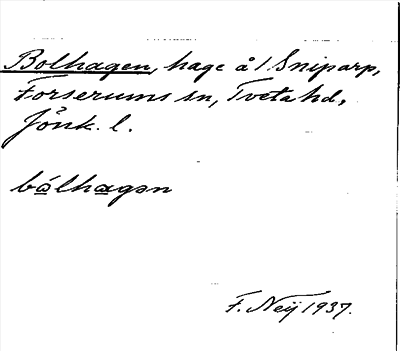 Bolhagen, hage å 1 Sniparp,
Forserums sn, Tveta hd,
Jönk. l.
bålhagən
F. Neij 1937.